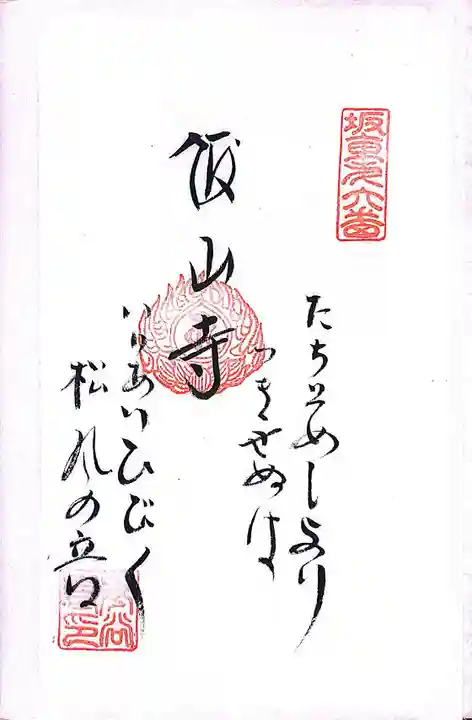 坂東第六番
飯山寺
たちそめしより
つきせぬは
いりあいひびく
松風の音